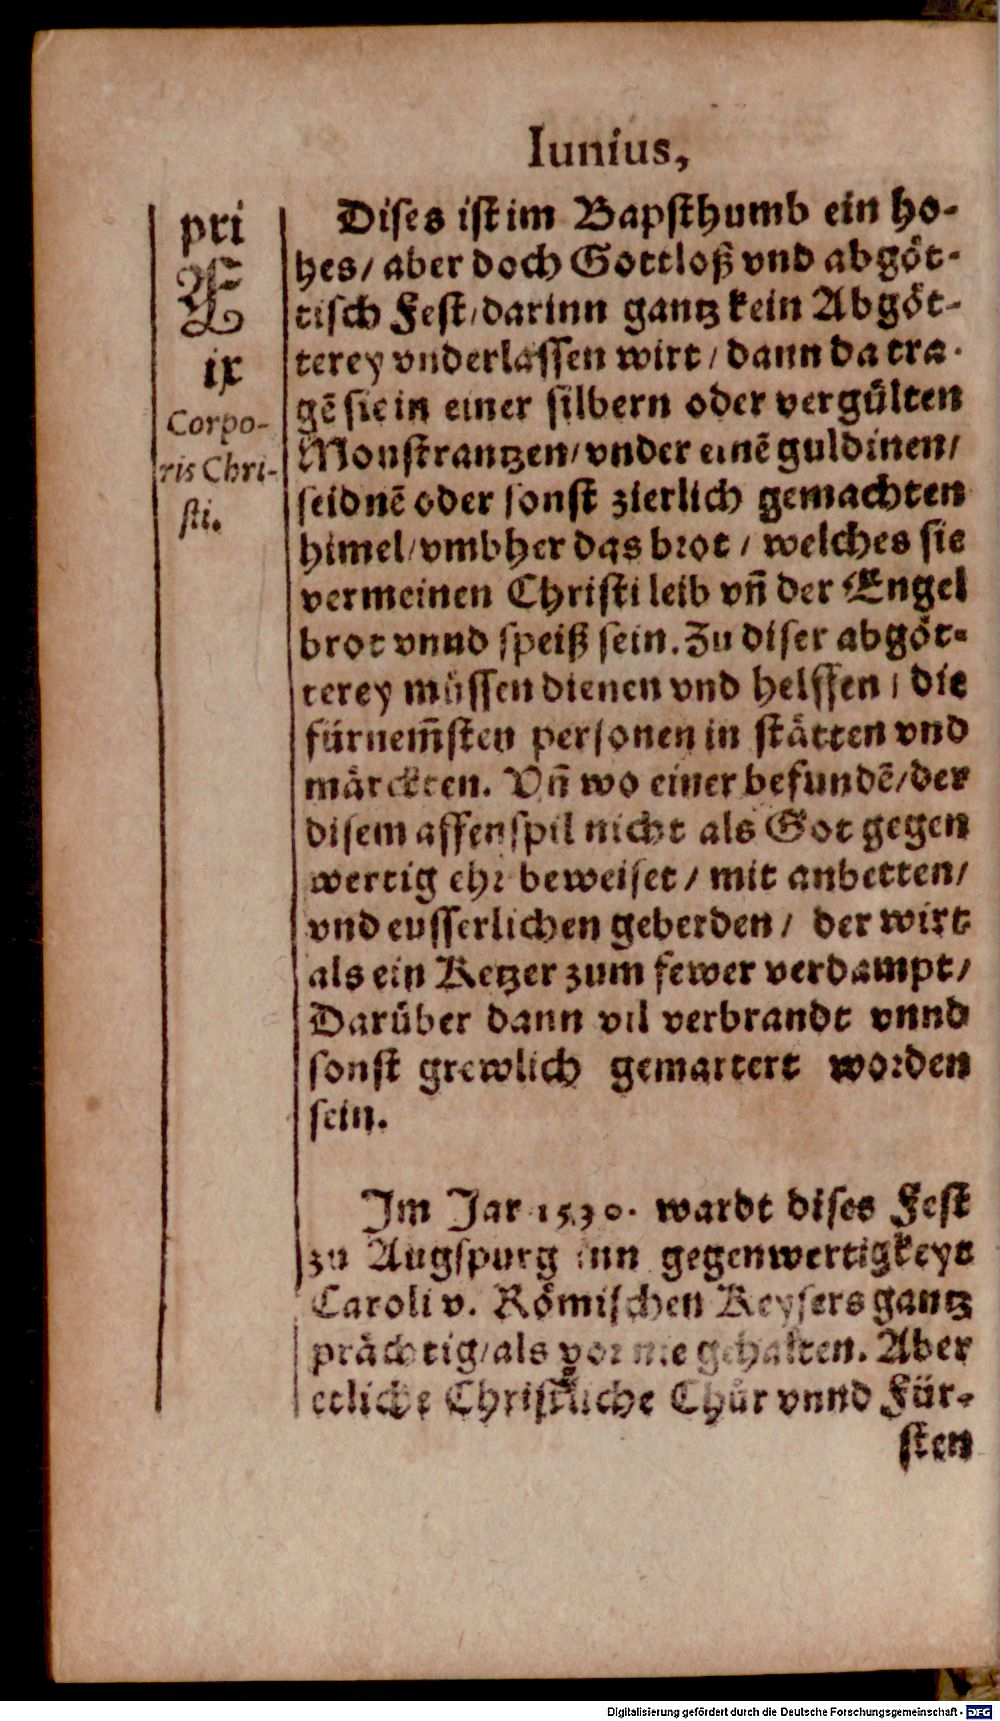 Iunius,
pri
E
ix
Corpo-
ris Chri-
sti.
Dises ist im Bapsthumb ein ho-
hes/ aber doch Gottloß vnd abgöt-
tisch Fest/ darinn gantz kein Abgöt-
terey vnderlassen wirt/ dann da tra-
gẽ sie in einer silbern oder vergülten
Monstrantzen/ vnder einẽ guldinen/
seidnẽ oder sonst zierlich gemachten
himel/ vmbher das brot/ welches sie
vermeinen Christi leib vñ der Engel
brot vnnd speiß sein. Zu diser abgöt-
terey müssen dienen vnd helffen/ die
fürnem̃sten personen in stätten vnd
märckten. Vñ wo einer befundẽ/ der
disem affenspil nicht als Got gegen
wertig ehr beweiset/ mit anbetten/
vnd eusserlichen geberden/ der wirt
als ein Ketzer zum fewer verdampt/
Darüber dann vil verbrandt vnnd
sonst grewlich gemartert worden
sein.
Im Jar 1530. wardt dises Fest
zu Augspurg inn gegenwertigkeyt
Caroli v. Römischen Keysers gantz
prächtig/ als vor nie gehalten. Aber
etliche Christliche Chür vnnd Für-
sten
Digitalisierung gefördert durch die Deutsche Forschungsgemeinschaft - DFG